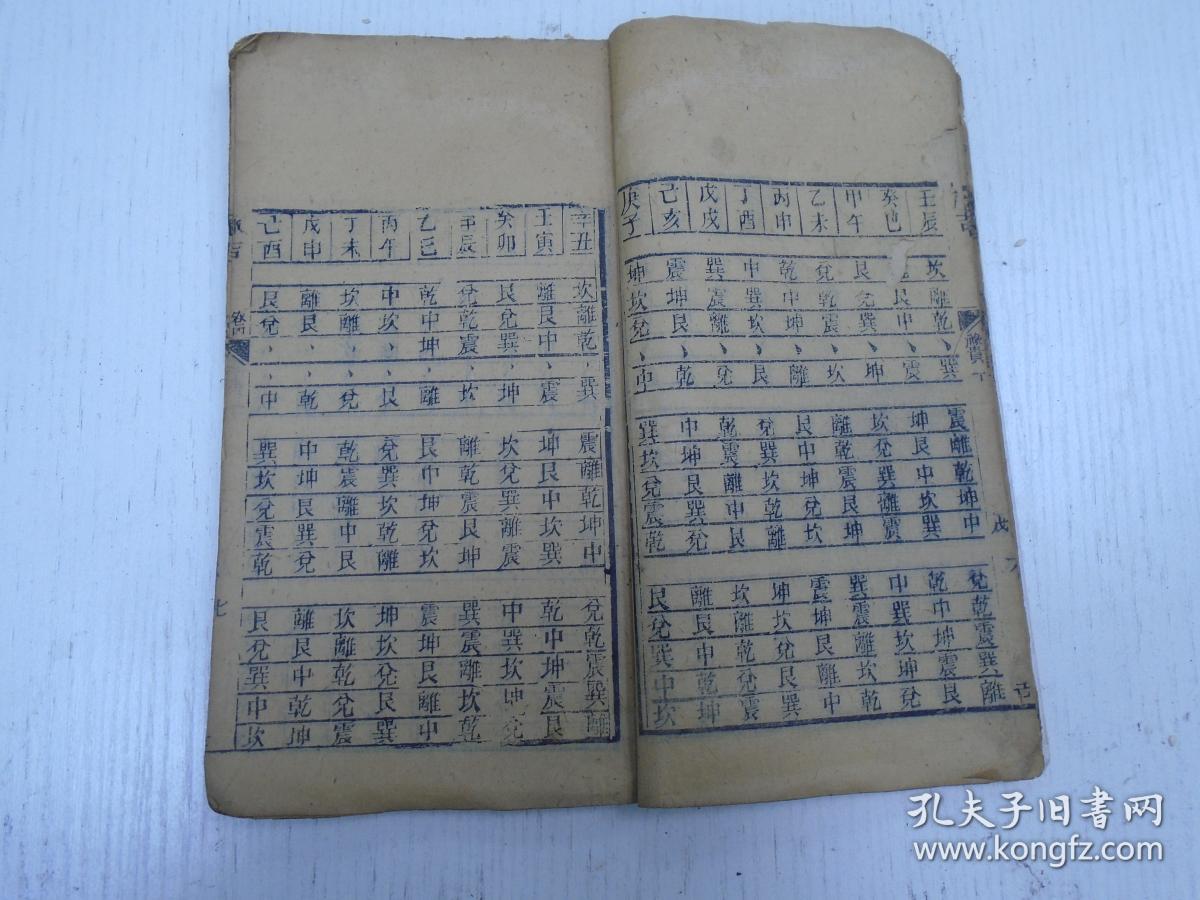 壬辰 坎離乾、巽 震離乾坤中 兌乾震巽離
癸巳 艮中、震 坤艮中坎巽 乾中坤震艮
甲午 艮兌巽、坤 坎兌巽離震 中巽坎坤兌
乙未 兌乾震、坎 離乾震艮坤 巽震離坎乾
丙申 乾中坤、離 艮中坤兌坎 震坤艮離中
丁酉 中巽坎、艮 兌巽坎乾離 坤坎兌艮巽
戊戌 巽震離、兌 乾震離中艮 坎離乾兌震
己亥 震坤艮、乾 中坤艮巽兌 離艮中乾坤
庚子 坤坎兌、中 巽坎兌震乾 艮兌巽中坎
辛丑 坎離乾、巽 震離乾坤中 兌乾震巽離
壬寅 離艮中、震 坤艮中坎巽 乾中坤震艮
癸卯 艮兌巽、坤 坎兌巽離震 中巽坎坤兌
甲辰 兌乾震、坎 離乾震艮坤 巽震離坎乾
乙巳 乾中坤、離 艮中坤兌坎 震坤艮離中
丙午 中坎、、艮 兌巽坎乾離 坤坎兌艮巽
丁未 坎離、、兌 乾震離中艮 坎離乾兌震
戊申 離艮、、乾 中坤艮巽兌 離艮中乾坤
己酉 艮兌、、中 巽坎兌震乾 艮兌巽中坎
七
孔夫子旧书网
www.kongfz.com